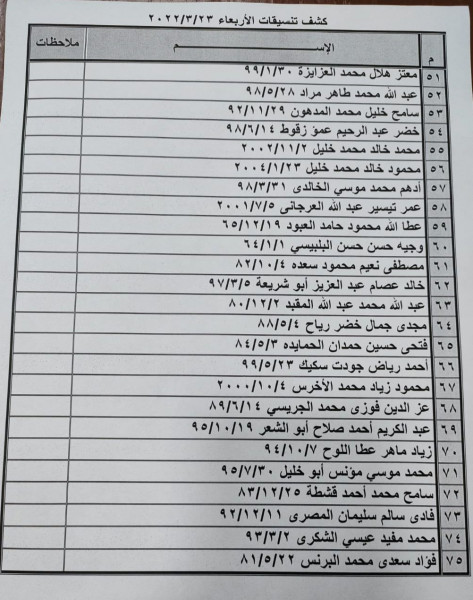 كشف تنسيقات الأربعاء ٢٠٢٢/٣/٢٣
م الإســـــم ملاحظات
٥١ معتز هلال محمد العزايزة ٩٩/١/٣٠
٥٢ عبد الله محمد طاهر مراد ٩٨/٥/٢٨
٥٣ سامح خليل محمد المدهون ٩٢/١١/٢٩
٥٤ خضر عبد الرحيم عمؤ زقوط ٩٨/٦/١٤
٥٥ محمد خالد محمد خليل ٢٠٠٢/١١/٢
٥٦ محمود خالد محمد خليل ٢٠٠٤/١/٢٣
٥٧ أدهم محمد موسي الخالدى ٩٨/٣/٣١
٥٨ عمر تيسير عبد الله العرجانى ٢٠٠١/٧/٥
٥٩ عطا الله محمود حامد العبود ٦٥/١٢/١٩
٦٠ وجيه حسن حسن البلبيسي ٦٤/١/١
٦١ مصطفى نعيم محمود سعده ٨٢/١٠/٤
٦٢ خالد عصام عبد العزيز أبو شريعة ٩٧/٣/٥
٦٣ عبد الله محمد عبد الله المقيد ٨٠/١٢/٢
٦٤ مجدى جمال خضر رياح ٨٨/٥/٤
٦٥ فتحى حسين حمدان الحمايده ٨٤/٥/٣
٦٦ أحمد رياض جودت سكيك ٩٩/٥/٢٣
٦٧ محمود زياد محمد الأخرس ٢٠٠٠/١٠/٤
٦٨ عز الدين فوزى محمد الجريسي ٨٩/٦/١٤
٦٩ عبد الكريم أحمد صلاح أبو الشعر ٩٥/١٠/١٩
٧٠ زياد ماهر عطا اللوح ٩٤/١٠/٧
٧١ محمد موسي مؤنس أبو خليل ٩٥/٧/٣٠
٧٢ سامح محمد أحمد قشطة ٨٣/١٢/٢٥
٧٣ فادى سالم سليمان المصرى ٩٢/١٢/١١
٧٤ محمد مفيد عيسي الشكرى ٩٣/٣/٢
٧٥ فؤاد سعدى محمد البرنس ٨١/٥/٢٢